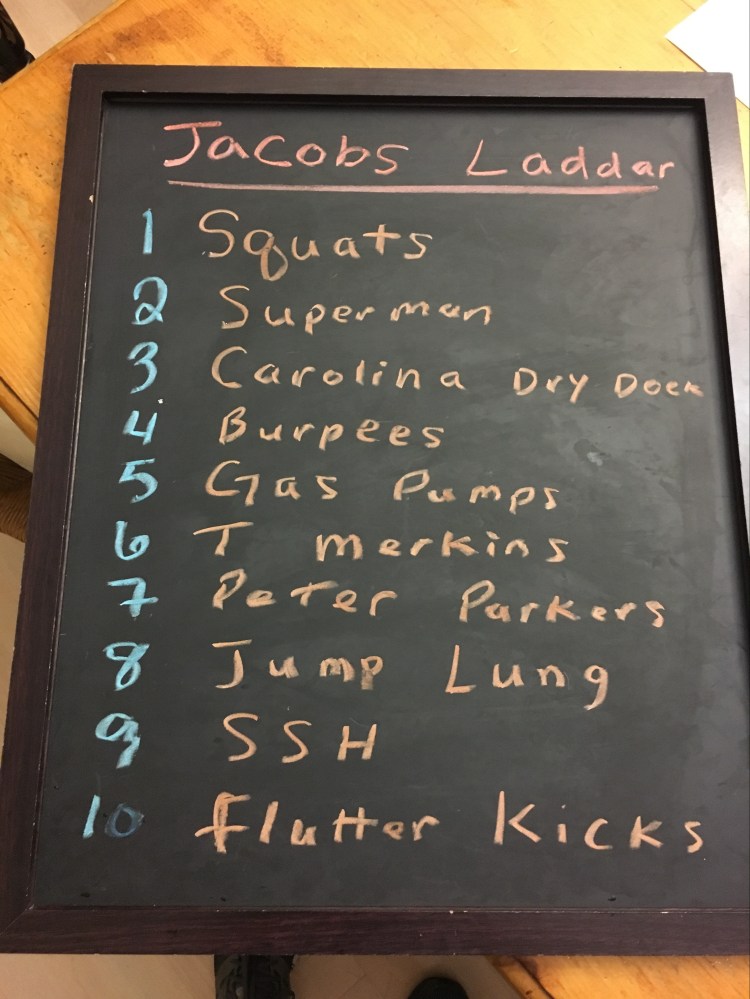 Jacobs Laddar
1 Squats
2 Superman
3 Carolina Dry Dock
4 Burpees
5 Gas Pumps
6 T merkins
7 Peter Parkers
8 Jump Lung
9 SSH
10 Flutter Kicks